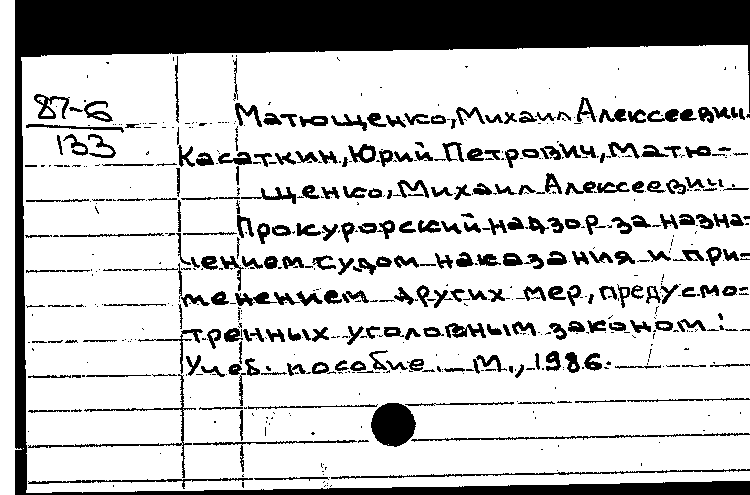 87-6
133
Матющенко, Михаил Алексеевич.
Касаткин, Юрий Петрович, Матю-
щенко, Михаил Алексеевич.
Прокурорский надзор за назна-
чением судом наказания и при-
менением других мер, предусмо-
тренных уголовным законом:
Учеб. пособие. _ М., 1986.